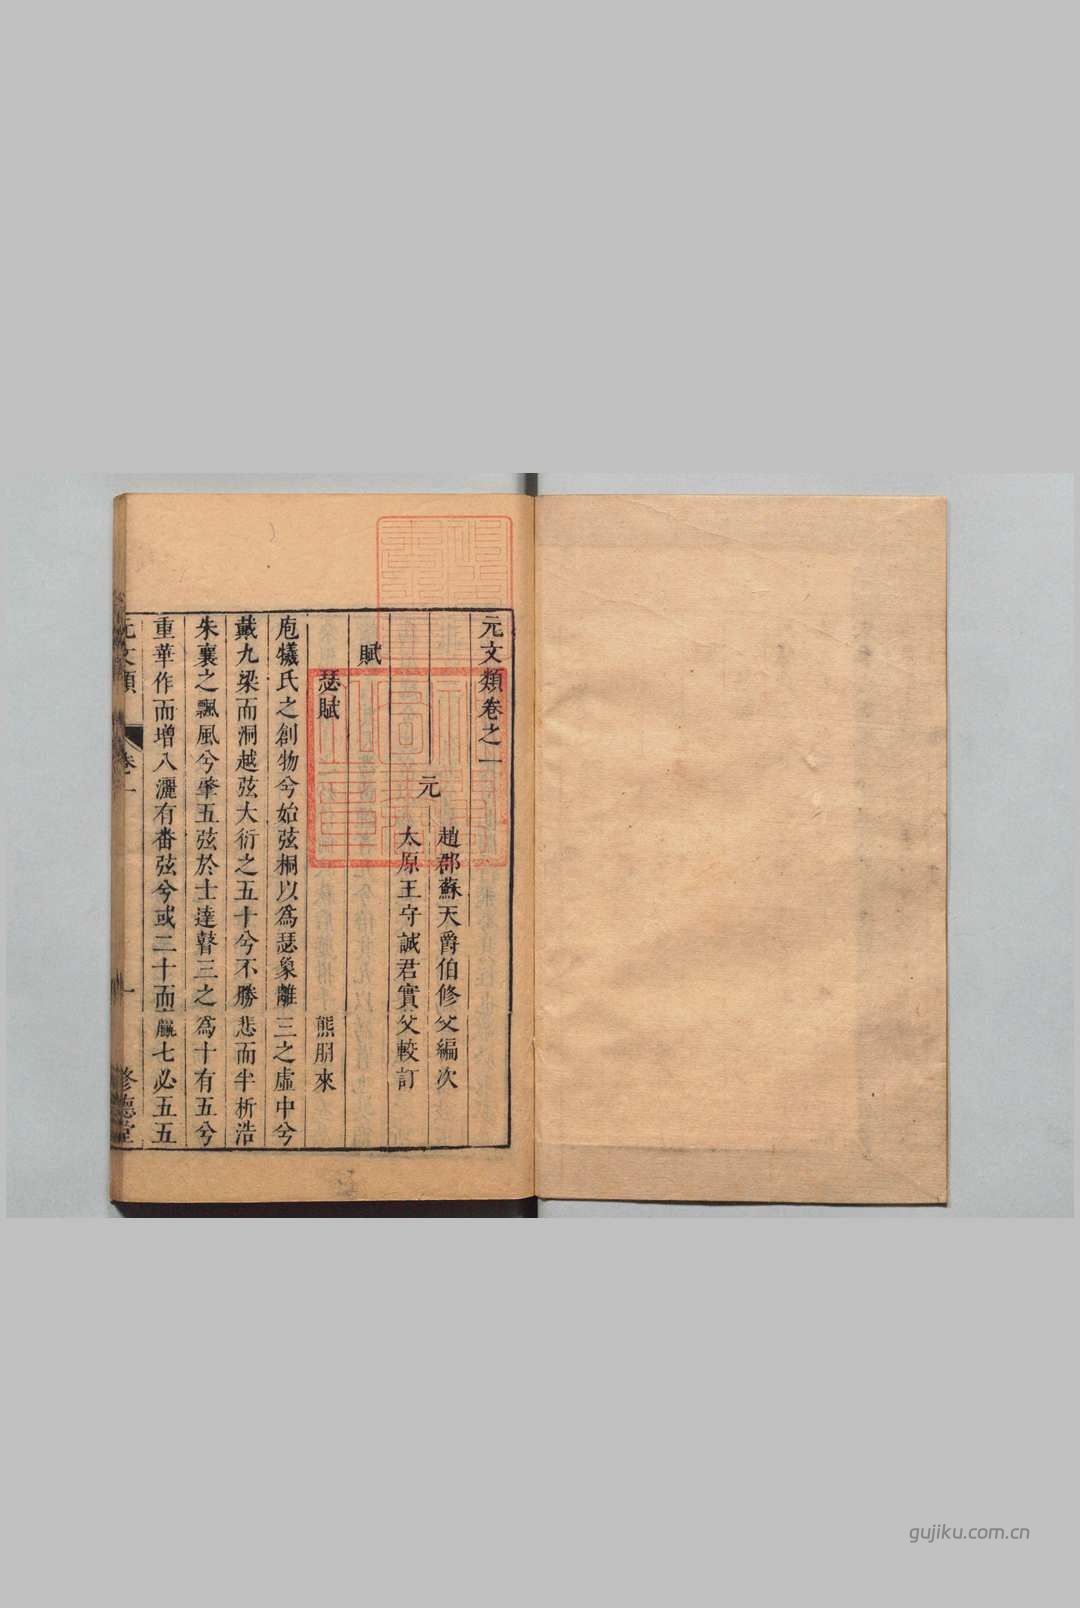 元文類卷之一
元
趙郡蘇天爵伯修父編次
太原王守誠君實父較訂
賦
瑟賦
熊朋來
庖犧氏之創物兮始弦桐以為瑟象離三之虛中兮
戴九梁而洞越弦大衍之五十兮不勝悲而半析浩
朱襄之飄風兮肇五弦於士達瞽三之為十有五兮
重華作而增八灑有番弦兮或二十而贏七必五五
元文類
卷一
一
修德堂
gujiku.com.cn